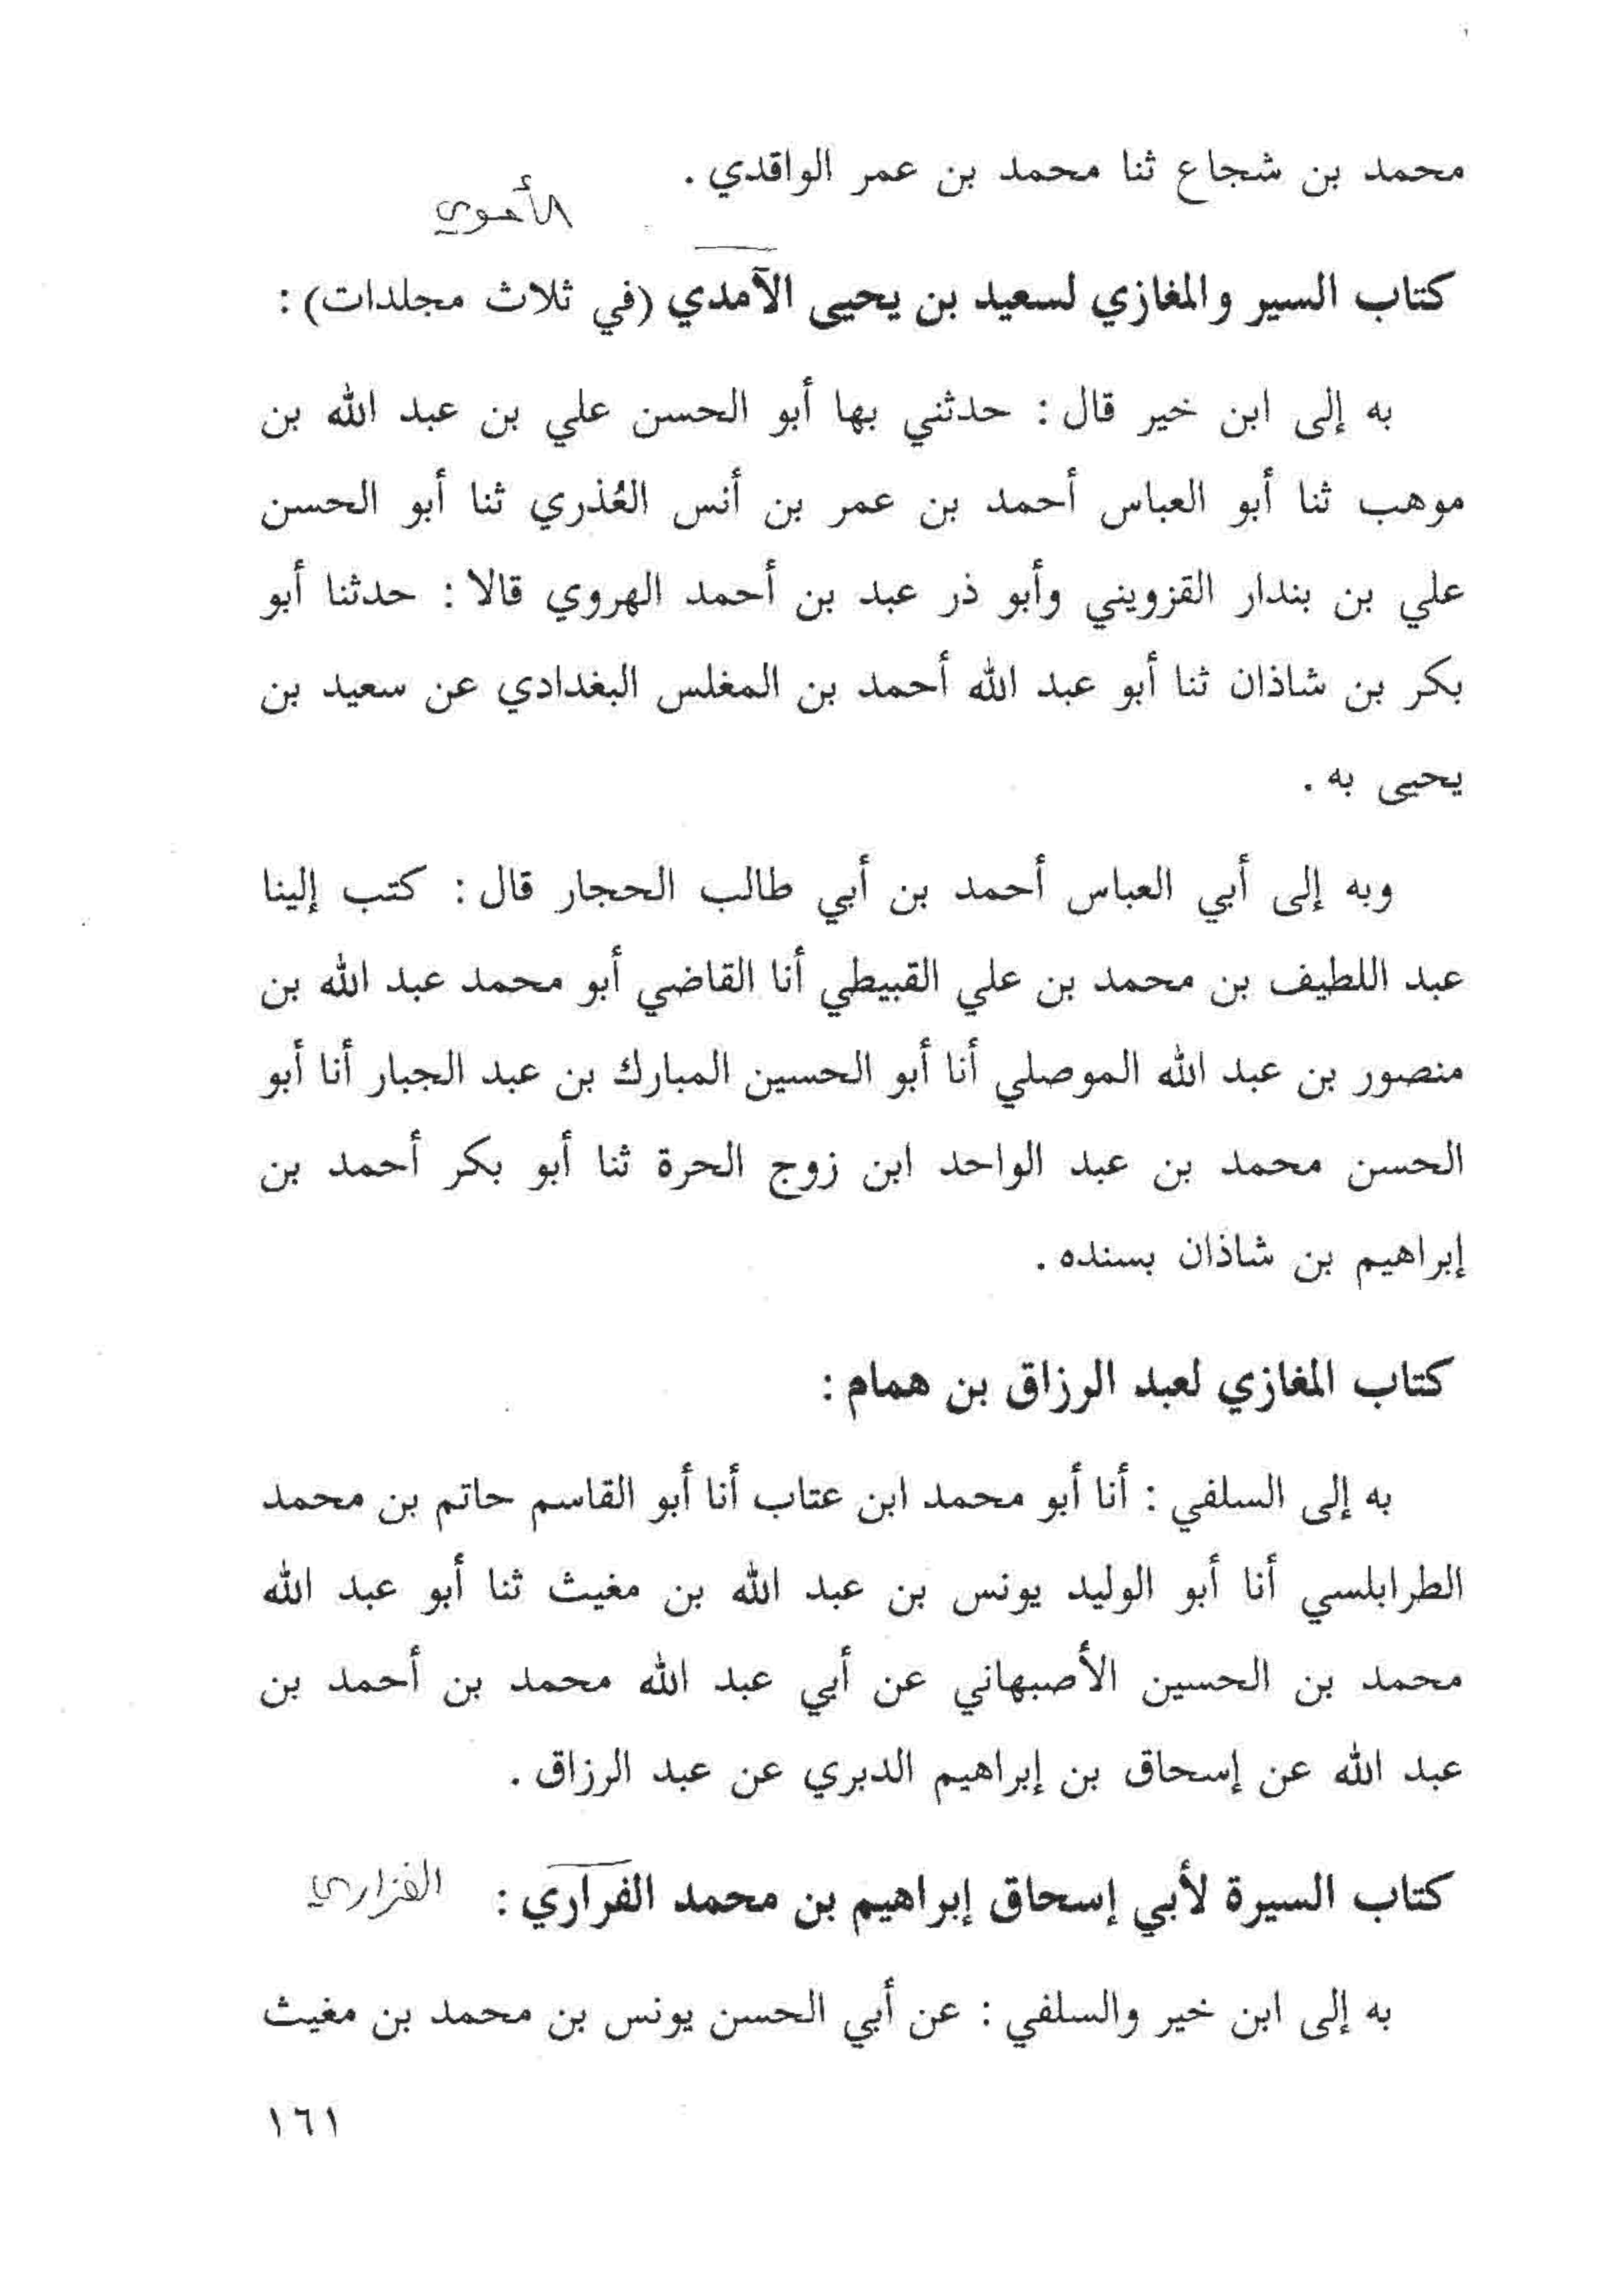 محمد بن شجاع ثنا محمد بن عمر الواقدي .
الأموي
كتاب السير والمغازي لسعيد بن يحيى الآمدي (في ثلاث مجلدات) :
به إلى ابن خير قال : حدثني بها أبو الحسن علي بن عبد الله بن
موهب ثنا أبو العباس أحمد بن عمر بن أنس العُذري ثنا أبو الحسن
علي بن بندار القزويني وأبو ذر عبد بن أحمد الهروي قالا : حدثنا أبو
بكر بن شاذان ثنا أبو عبد الله أحمد بن المغلس البغدادي عن سعيد بن
يحيى به .
وبه إلى أبي العباس أحمد بن أبي طالب الحجار قال : كتب إلينا
عبد اللطيف بن محمد بن علي القبيطي أنا القاضي أبو محمد عبد الله بن
منصور بن عبد الله الموصلي أنا أبو الحسين المبارك بن عبد الجبار أنا أبو
الحسن محمد بن عبد الواحد ابن زوج الحرة ثنا أبو بكر أحمد بن
إبراهيم بن شاذان بسنده .
كتاب المغازي لعبد الرزاق بن همام :
به إلى السلفي : أنا أبو محمد ابن عتاب أنا أبو القاسم حاتم بن محمد
الطرابلسي أنا أبو الوليد يونس بن عبد الله بن مغيث ثنا أبو عبد الله
محمد بن الحسين الأصبهاني عن أبي عبد الله محمد بن أحمد بن
عبد الله عن إسحاق بن إبراهيم الدبري عن عبد الرزاق .
كتاب السيرة لأبي إسحاق إبراهيم بن محمد الفراري : الفزاري
به إلى ابن خير والسلفي : عن أبي الحسن يونس بن محمد بن مغيث
١٦١